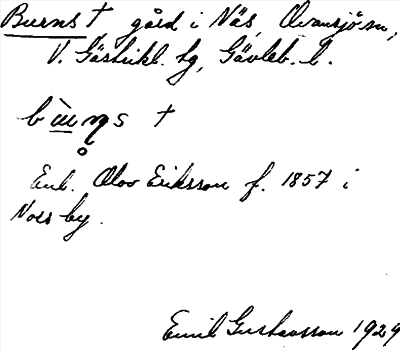 Burns † gård i Näs, Ovansjö sn,
V. Gästrikl. tg, Gävleb. l.
Enl. Olov Eriksson f. 1857 i
Nors by.
Emil Gustavsson 1929